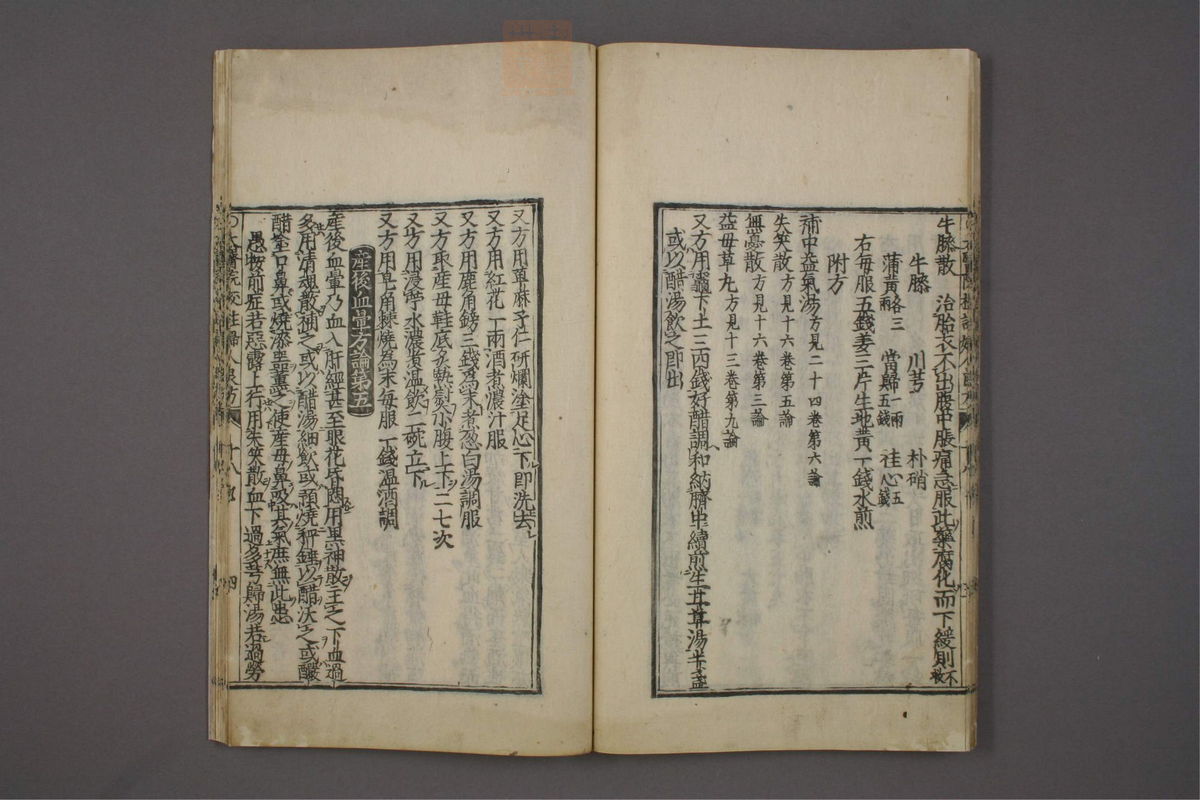 牛膝散 治胎衣不出腹中脹痛急服此藥腐化而下緩則不救
牛膝 川芎 朴硝
蒲黃各三兩 當歸一兩五錢 桂心五錢
右每服五錢姜三片生地黃一錢水煎
附方
補中益氣湯方見二十四卷第六論
失笑散方見十六卷第五論
無憂散方見十六卷第三論
益母草丸方見十三卷第九論
又方用竈下土三四錢好醋調和納臍中續煎生甘草湯半盞
或以醋湯飲之即出
又方用草麻子仁研爛塗足心下即洗去
又方用紅花一兩酒煮濃汁服
又方用鹿角鎊三錢爲末煮葱白湯調服
又方取產母鞋底炙熱熨小腹上下二七次
又方用浸苧水濃煮溫飲二碗立下
又方用皂角棘燒爲末每服一錢溫酒調
產後血暈方論第五
產後血暈乃血入肝經甚至眼花昏悶用黑神散主之下血過
多用清魂散補之或以醋湯細飲或預燒秤錘以醋沃之或釅
醋塗口鼻或燒漆器薰之使產母鼻吸其氣庶無此患
愚按前症若惡露上行用失笑散血下過多芎歸湯若過勞
十八
四